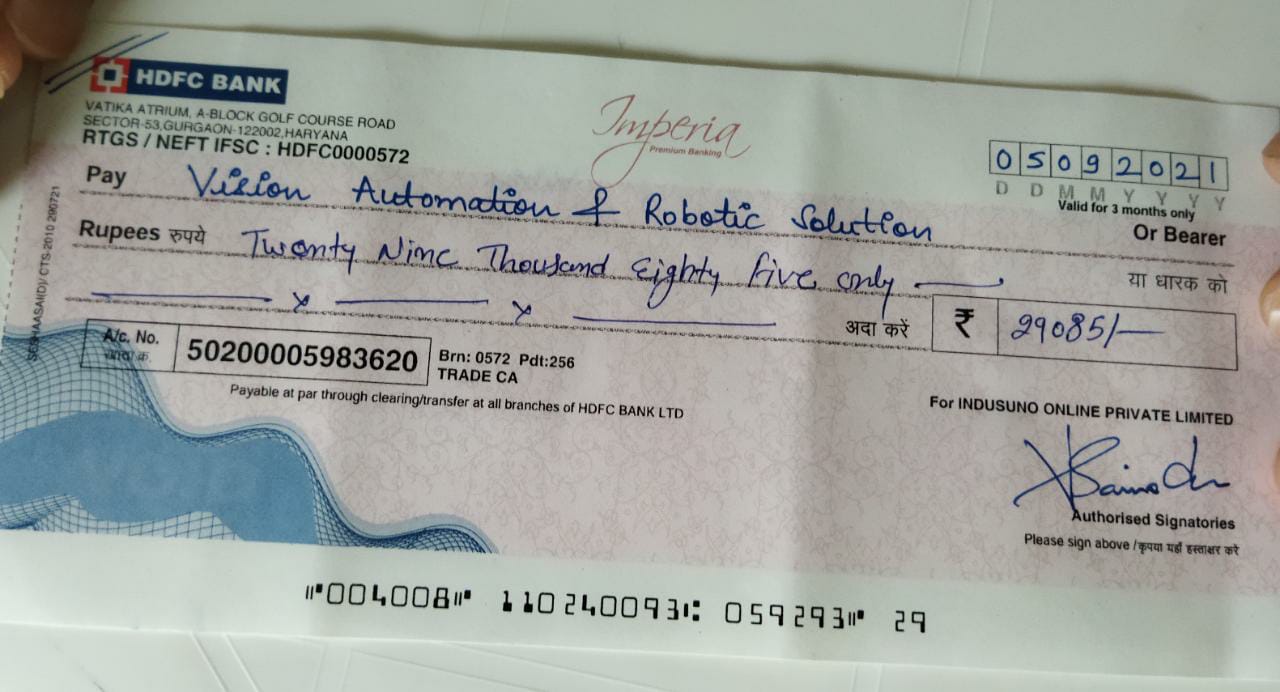 HDFC BANK
VATIKA ATRIUM, A-BLOCK GOLF COURSE ROAD
SECTOR-53,GURGAON-122002,HARYANA
RTGS / NEFT IFSC : HDFC0000572
Imperia
Premium Banking
05092021
D D M M Y Y Y Y
Valid for 3 months only
Pay Vision Automation & Robotic Solution Or Bearer
Rupees रुपये Twenty Nine Thousand Eighty Five only या धारक को
x x अदा करें ₹ 29085/-
A/c. No. 50200005983620 Brn: 0572 Pdt:256
TRADE CA
Payable at par through clearing/transfer at all branches of HDFC BANK LTD
For INDUSUNO ONLINE PRIVATE LIMITED
Authorised Signatories
Please sign above /कृपया यहाँ हस्ताक्षर करे
⑈004008⑈ 110240093⑆ 059293⑈ 29